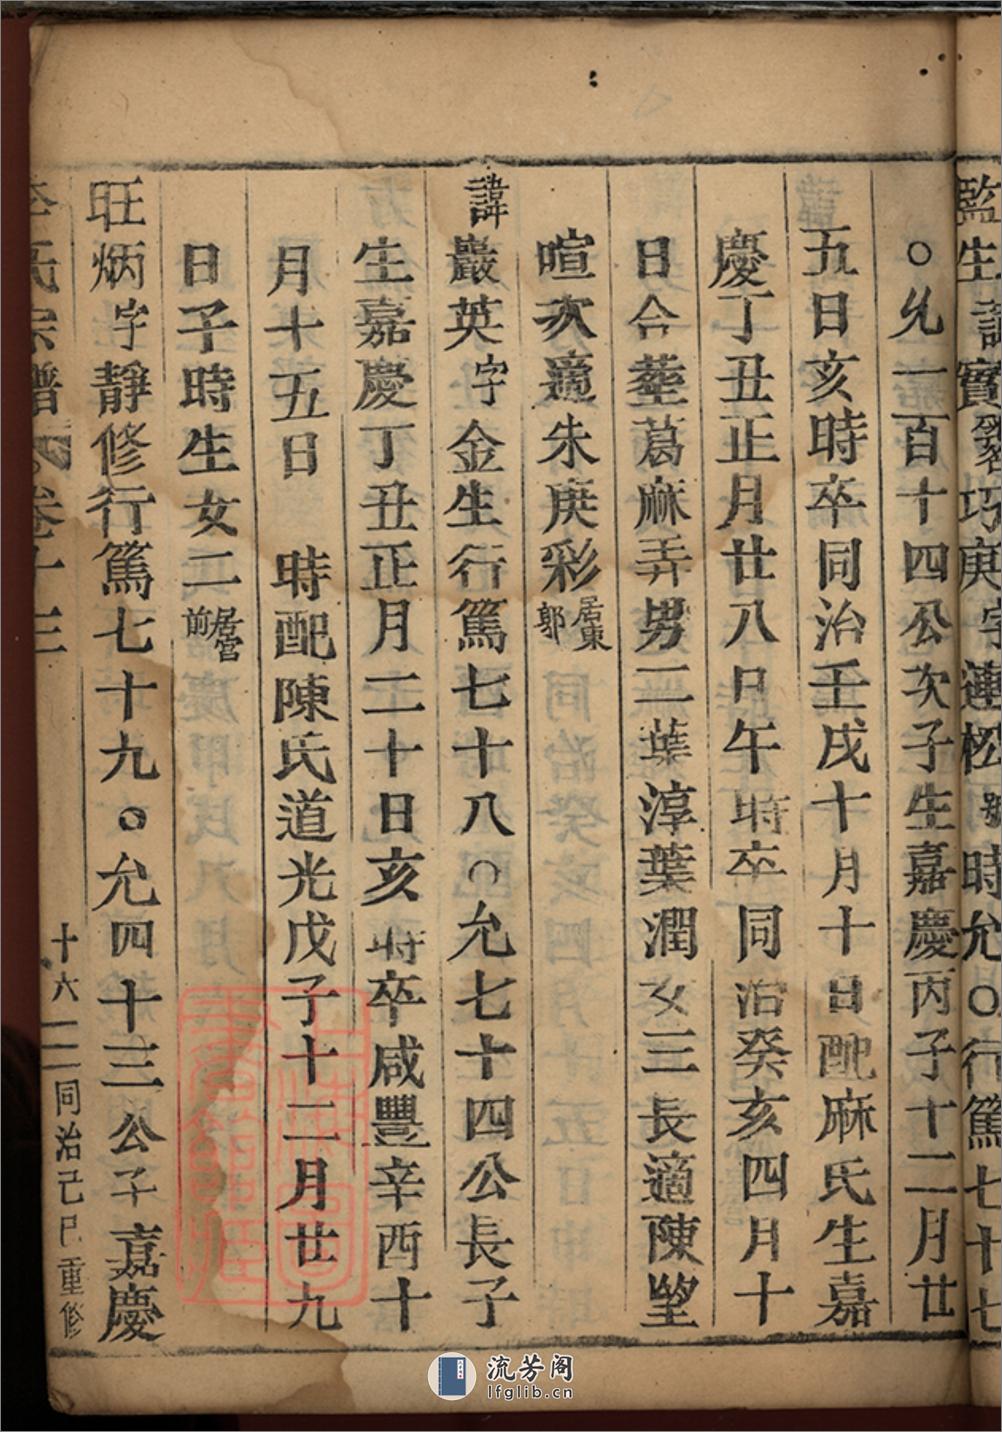 監生諱寶 巧庚字蓮松號時允〇行篤七十七
〇允一百十四公次子生嘉慶丙子十二月廿
五日亥時卒同治壬戌十月十日配麻氏生嘉
慶丁丑正月廿八日午時卒同治癸亥四月十
日合塟葛麻弄男二葉淳葉潤女三長適陳塱
暄次適朱庚彩居東郭
諱巖英字金生行篤七十八〇允七十四公長子
生嘉慶丁丑正月二十日亥時卒咸豐辛酉十
月十五日 時配陳氏道光戊子十二月廿九
日子時生女二居營前
旺炳字靜修行篤七十九〇允四十三公子嘉慶
李氏宗譜 卷十三 十六 同治己巳重修
流芳阁
lfglib.cn